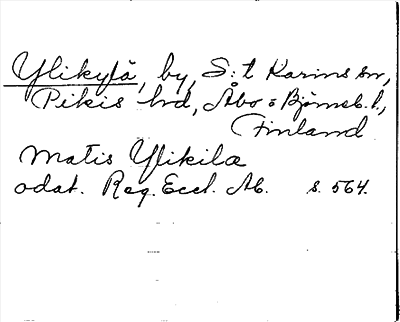 Ylikylä, by, S:t Karins sn,
Pikis hd, Åbo o Björneb. l.,
Finland
Matis Ylikila
odat. Reg. Eccl. Ab. s. 564.